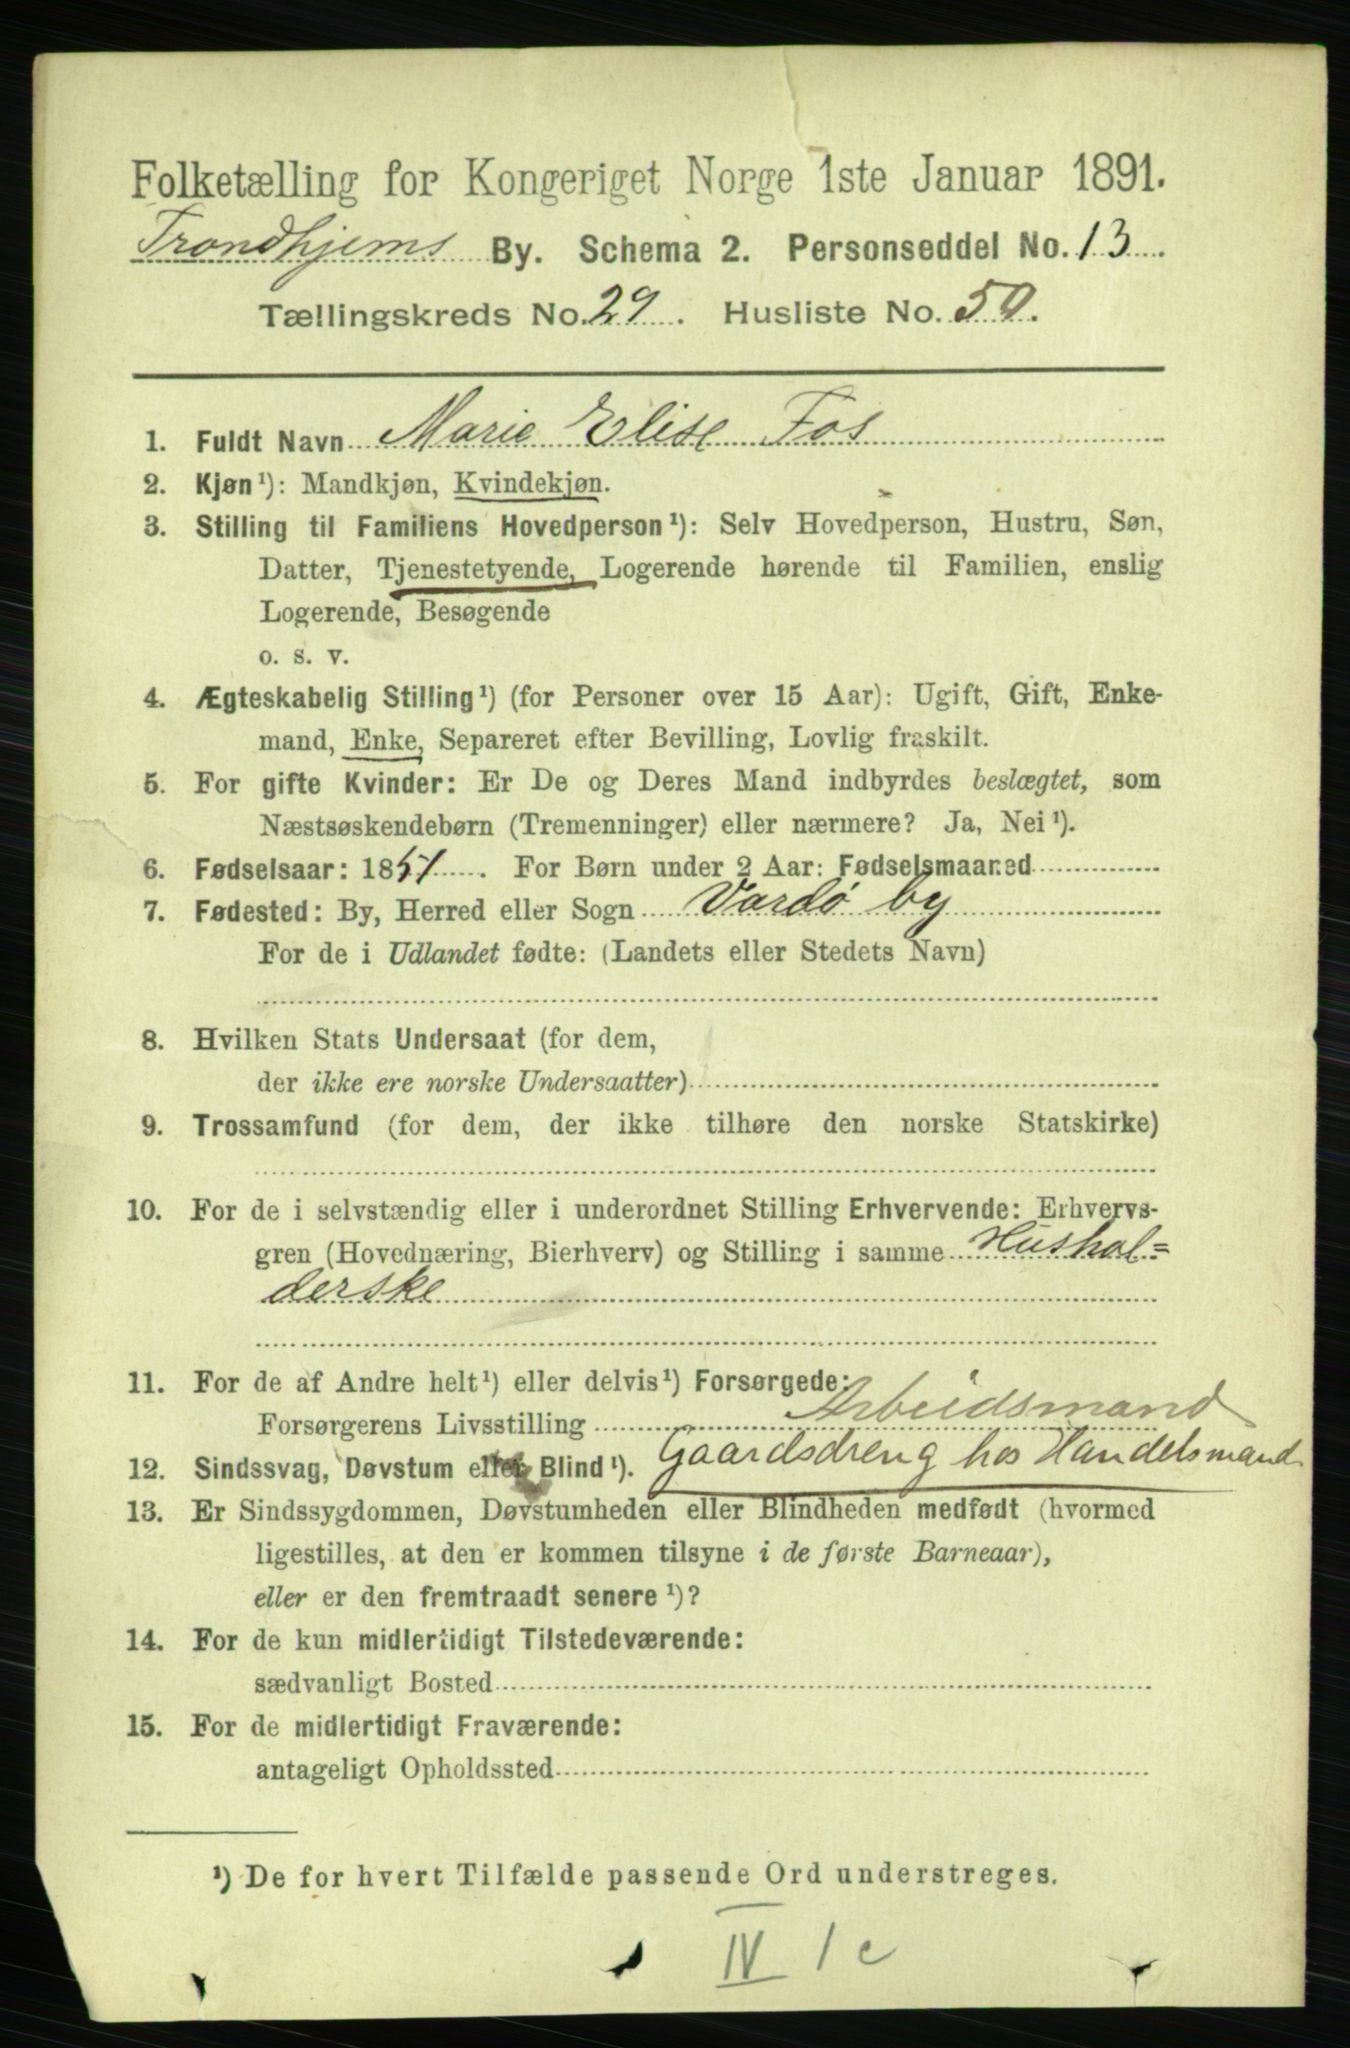 Folketælling for Kongeriget Norge 1ste Januar 1891.
Trondhjems By. Schema 2. Personseddel No. 13.
Tællingskreds No. 29. Husliste No. 50.
1. Fuldt Navn Marie Elise Fos
2. Kjøn¹): Mandkjøn, Kvindekjøn.
3. Stilling til Familiens Hovedperson¹): Selv Hovedperson, Hustru, Søn,
Datter, Tjenestetyende, Logerende hørende til Familien, enslig
Logerende, Besøgende
o. s. v.
4. Ægteskabelig Stilling¹) (for Personer over 15 Aar): Ugift, Gift, Enke-
mand, Enke, Separeret efter Bevilling, Lovlig fraskilt.
5. For gifte Kvinder: Er De og Deres Mand indbyrdes beslægtet, som
Næstsøskendebørn (Tremenninger) eller nærmere? Ja, Nei¹).
6. Fødselsaar: 1851. For Børn under 2 Aar: Fødselsmaaned
7. Fødested: By, Herred eller Sogn Vardø by
For de i Udlandet fødte: (Landets eller Stedets Navn)
8. Hvilken Stats Undersaat (for dem,
der ikke ere norske Undersaatter)
9. Trossamfund (for dem, der ikke tilhøre den norske Statskirke)
10. For de i selvstændig eller i underordnet Stilling Erhvervende: Erhvervs-
gren (Hovednæring, Bierhverv) og Stilling i samme Hushol=
derske
11. For de af Andre helt¹) eller delvis¹) Forsørgede:
Forsørgerens Livsstilling Arbeidsmand
Gaardsdreng hos Handelsmand
12. Sindssvag, Døvstum eller Blind¹).
13. Er Sindssygdommen, Døvstumheden eller Blindheden medfødt (hvormed
ligestilles, at den er kommen tilsyne i de første Barneaar),
eller er den fremtraadt senere¹)?
14. For de kun midlertidigt Tilstedeværende:
sædvanligt Bosted
15. For de midlertidigt Fraværende:
antageligt Opholdssted
¹) De for hvert Tilfælde passende Ord understreges.
IV 1 c